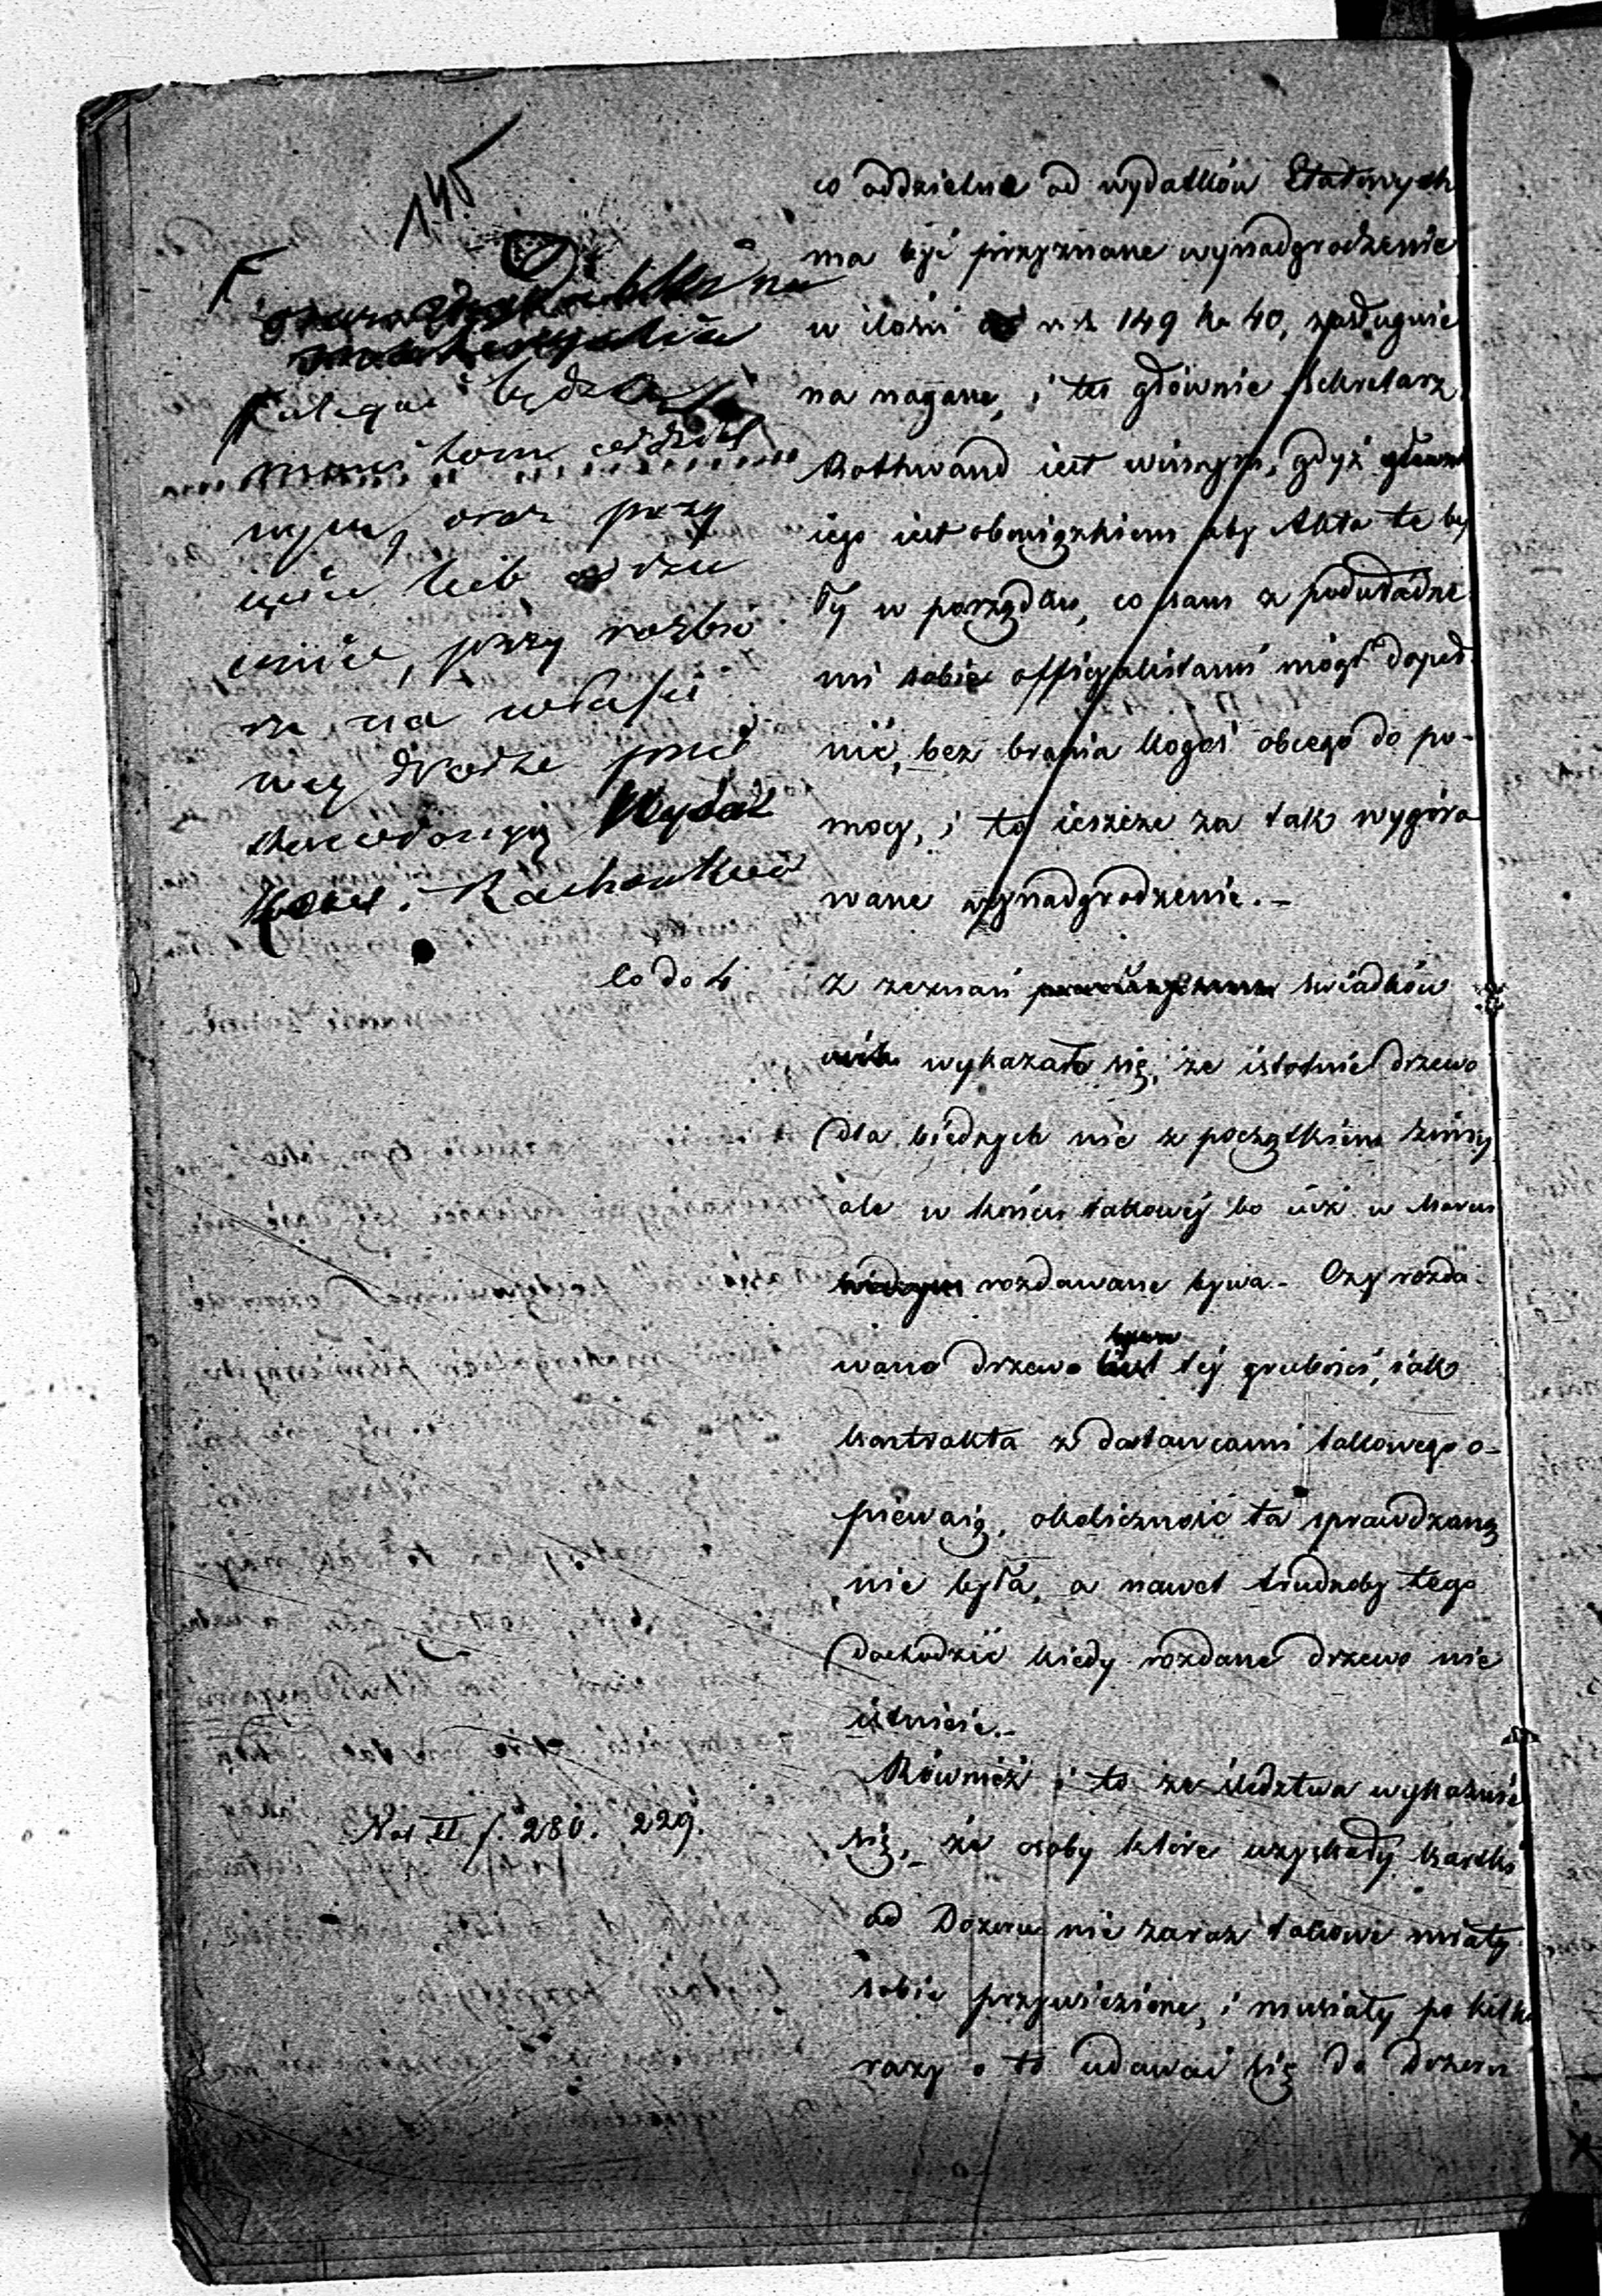 145
ulegać będzie
oraz przy
ięcie lub odrzu
cenie, przy rozbio
rze na właści
wey drodze przed
Wydat
ków i Rachunków
co oddzielnie od wydatków Etatowych
ma być przyznane wynadgrodzenie
w ilości rs 149 k. 40, zasługuie
na naganę, i tu głównie Sekretarz
Rothwand iest winnym, gdyż główn
iego iest obowiązkiem aby Akta te by
ły w porządku, co sam z podwładne
mi sobie officyalistami mógł dopeł
nić, bez brania kogoś obcego do po-
mocy, i to ieszcze za tak wygóro
wane wynadgrodzenie.-
Co do 4
Z zeznań świadków
wykazało się, że istotnie drzewo
dla biednych nie z początkiem zimy
ale w końcu takowéj bo iuż w Marcu
rozdawane bywa.- Czy rozda-
wano drzewo bywa téj grubości, iak
kontrakta z dostawcami takowego o-
piewaią, okoliczność ta sprawdzaną
nie była, a nawet trudnoby tego
dochodzić kiedy rozdane drzewo nie
istnieie.-
Również i to ze śledztwa wykazuie
Vol II f. 280. 229.
się, że osoby które uzyskały kartki
od Dozoru nie zaraz takowe miały
sobie przywiezione, i musiały po kilka
razy o to udawać się do Dozoru